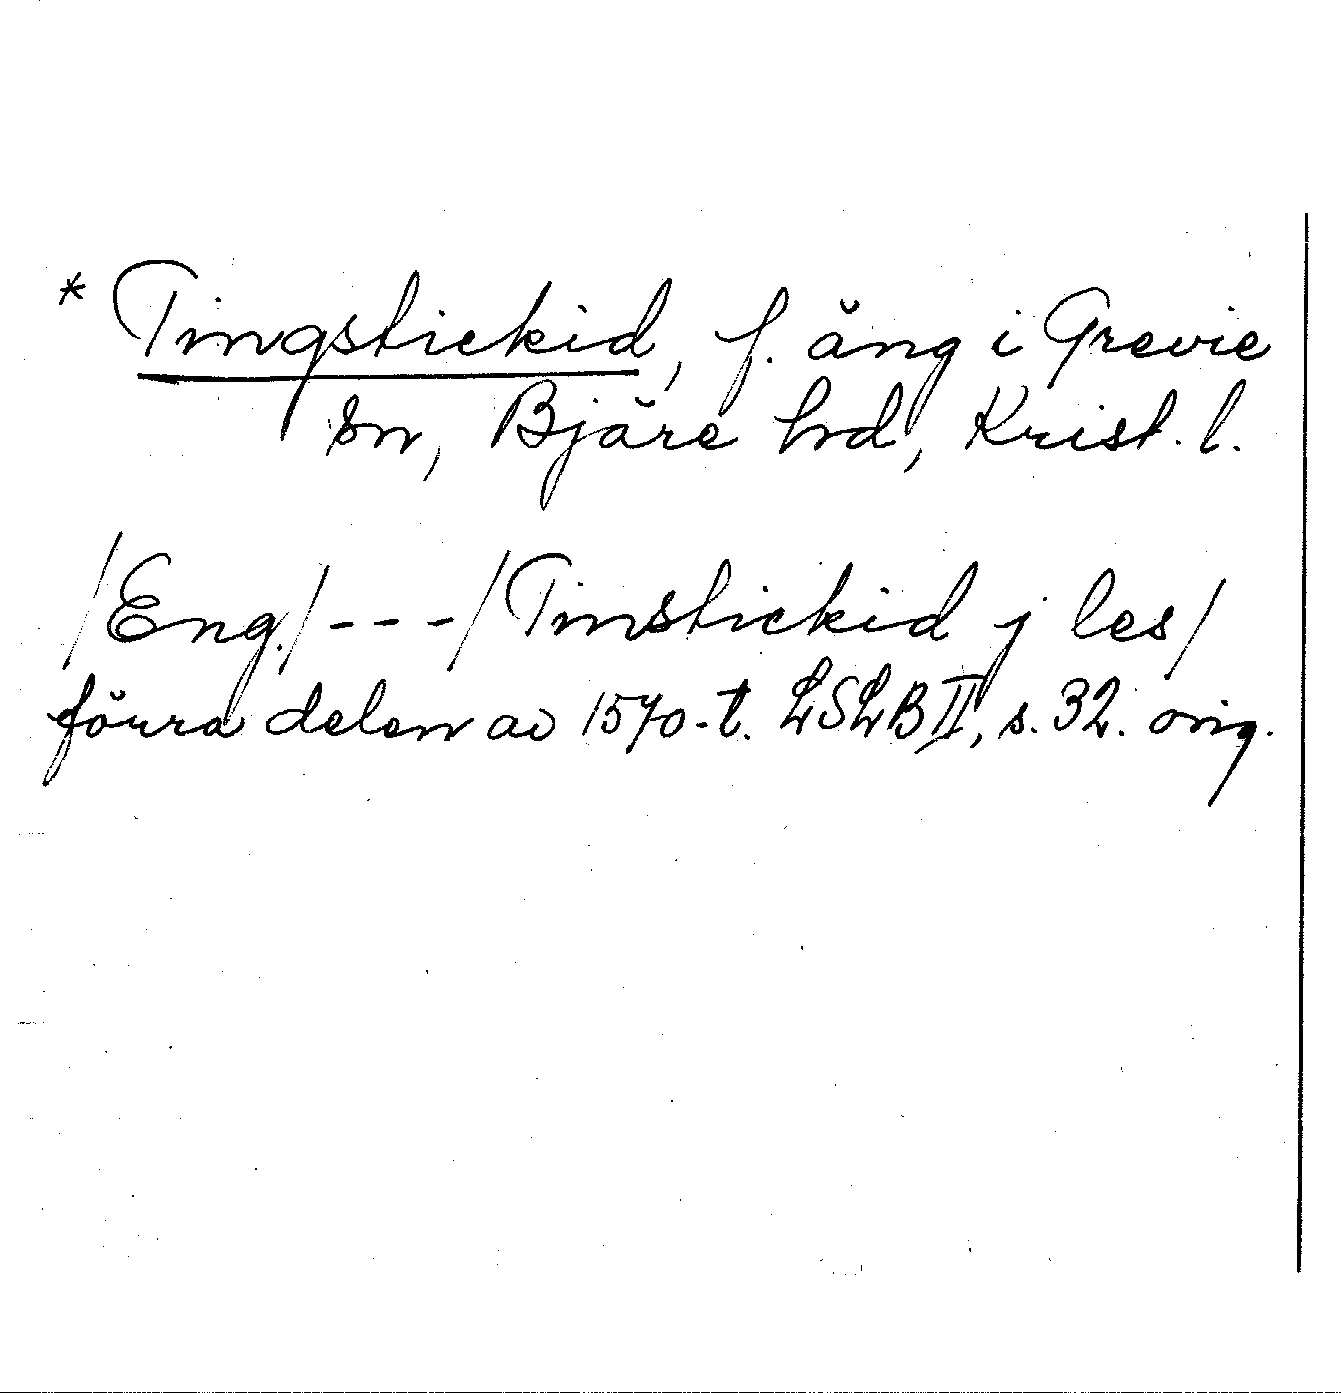 * Tingstickid, f. äng i Grevie
sn, Bjäre hd, Krist. l.
/Eng./---/Tinstickid j les/
förra delen av 1570-t. LSLB II, s. 32. orig.